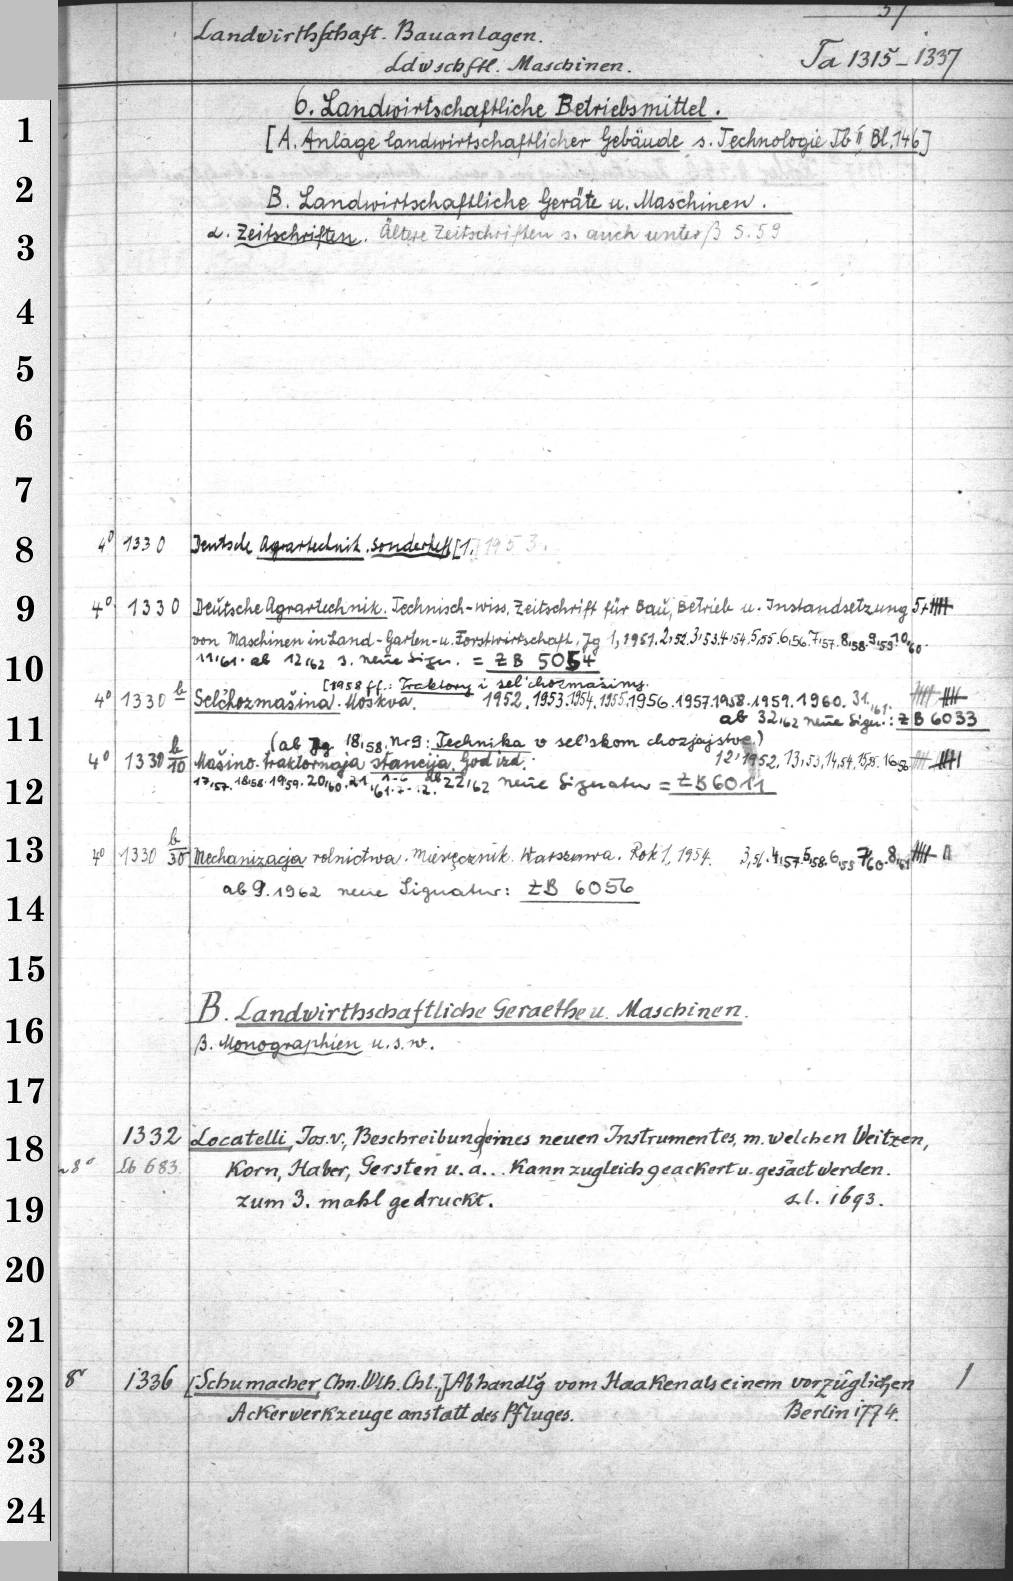 57
Landwirthschaft. Bauanlagen.
Ldwschftl. Maschinen.
Ta 1315-1337
6. Landwirtschaftliche Betriebsmittel.
[A. Anlage landwirtschaftlicher Gebäude s. Technologie Tb II Bl. 146]
B. Landwirtschaftliche Geräte u. Maschinen.
α. Zeitschriften. Ältere Zeitschriften s. auch unter β S. 59
4° 1330 Deutsche Agrartechnik. Sonderheft [1.] 1953.
4° 1330 Deutsche Agrartechnik. Technisch-wiss. Zeitschrift für Bau, Betrieb u. Instandsetzung
von Maschinen in Land-Garten-u. Forstwirtschaft. Jg 1, 1951. 2,52. 3,53. 4,54. 5,55. 6,56. 7,57. 8,58. 9,59. 10,60.
11,61. ab 12,62 s. neue Sign. = ZB 5054
[1958 ff.: Traktory i sel'chozmašiny.
4° 1330 b Sel'chozmašina. Moskva. 1952. 1953. 1954. 1955. 1956. 1957. 1958. 1959. 1960. 31,61.
ab 32,62 neue Sign.: ZB 6033
(ab Jg 18,58, Nr 9: Technika v sel'skom chozjajstve.)
4° 1330 b/10 Mašino-traktornaja stancija. God izd. 12,1952. 13,53. 14,54. 15,55. 16,56
17,57. 18,58. 19,59. 20,60. 21,61. 1-6. 7-12. ab 22,62 neue Signatur = ZB 6011
4° 1330 b/30 Mechanizacja rolnictwa. Miesięcznik. Warszawa. Rok 1, 1954. 3,56. 4,57. 5,58. 6,59 7,60. 8,61
ab 9. 1962 neue Signatur: ZB 6056
B. Landwirthschaftliche Geraethe u. Maschinen.
β. Monographien u.s.w.
1332 Locatelli, Jos. v., Beschreibung eines neuen Instrumentes, m. welchen Weitzen,
8° Lb 683. Korn, Haber, Gersten u. a... Kann zugleich geackert u. gesäet werden.
zum 3. mahl gedruckt. s.l. 1693.
8° 1336 [Schumacher, Chn. Wlh. Chl.,] Abhandlg vom Haaken als einem vorzüglichen 1
Ackerwerkzeuge anstatt des Pfluges. Berlin 1774.
1
2
3
4
5
6
7
8
9
10
11
12
13
14
15
16
17
18
19
20
21
22
23
24